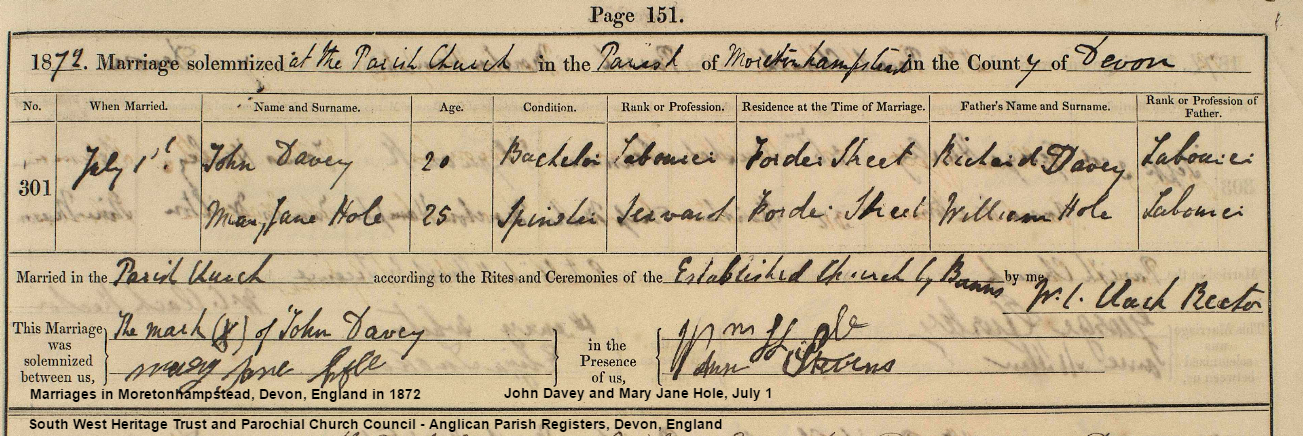 Page 151.
1872. Marriage solemnized at the Parish Church in the Parish of Moretonhampstead in the County of Devon
No. When Married. Name and Surname. Age. Condition. Rank or Profession. Residence at the Time of Marriage. Father's Name and Surname. Rank or Profession of Father.
301 July 1st John Davey 20 Bachelor Labourer Forder Street Richard Davey Labourer
Mary Jane Hole 25 Spinster Servant Forder Street William Hole Labourer
Married in the Parish Church according to the Rites and Ceremonies of the Established Church by Banns by me,
W. C. Clack Rector
This Marriage was solemnized between us, The mark (X) of John Davey in the Presence of us, Wm Hole
mary Jane Hole Ann Stevens
Marriages in Moretonhampstead, Devon, England in 1872 John Davey and Mary Jane Hole, July 1
South West Heritage Trust and Parochial Church Council - Anglican Parish Registers, Devon, England